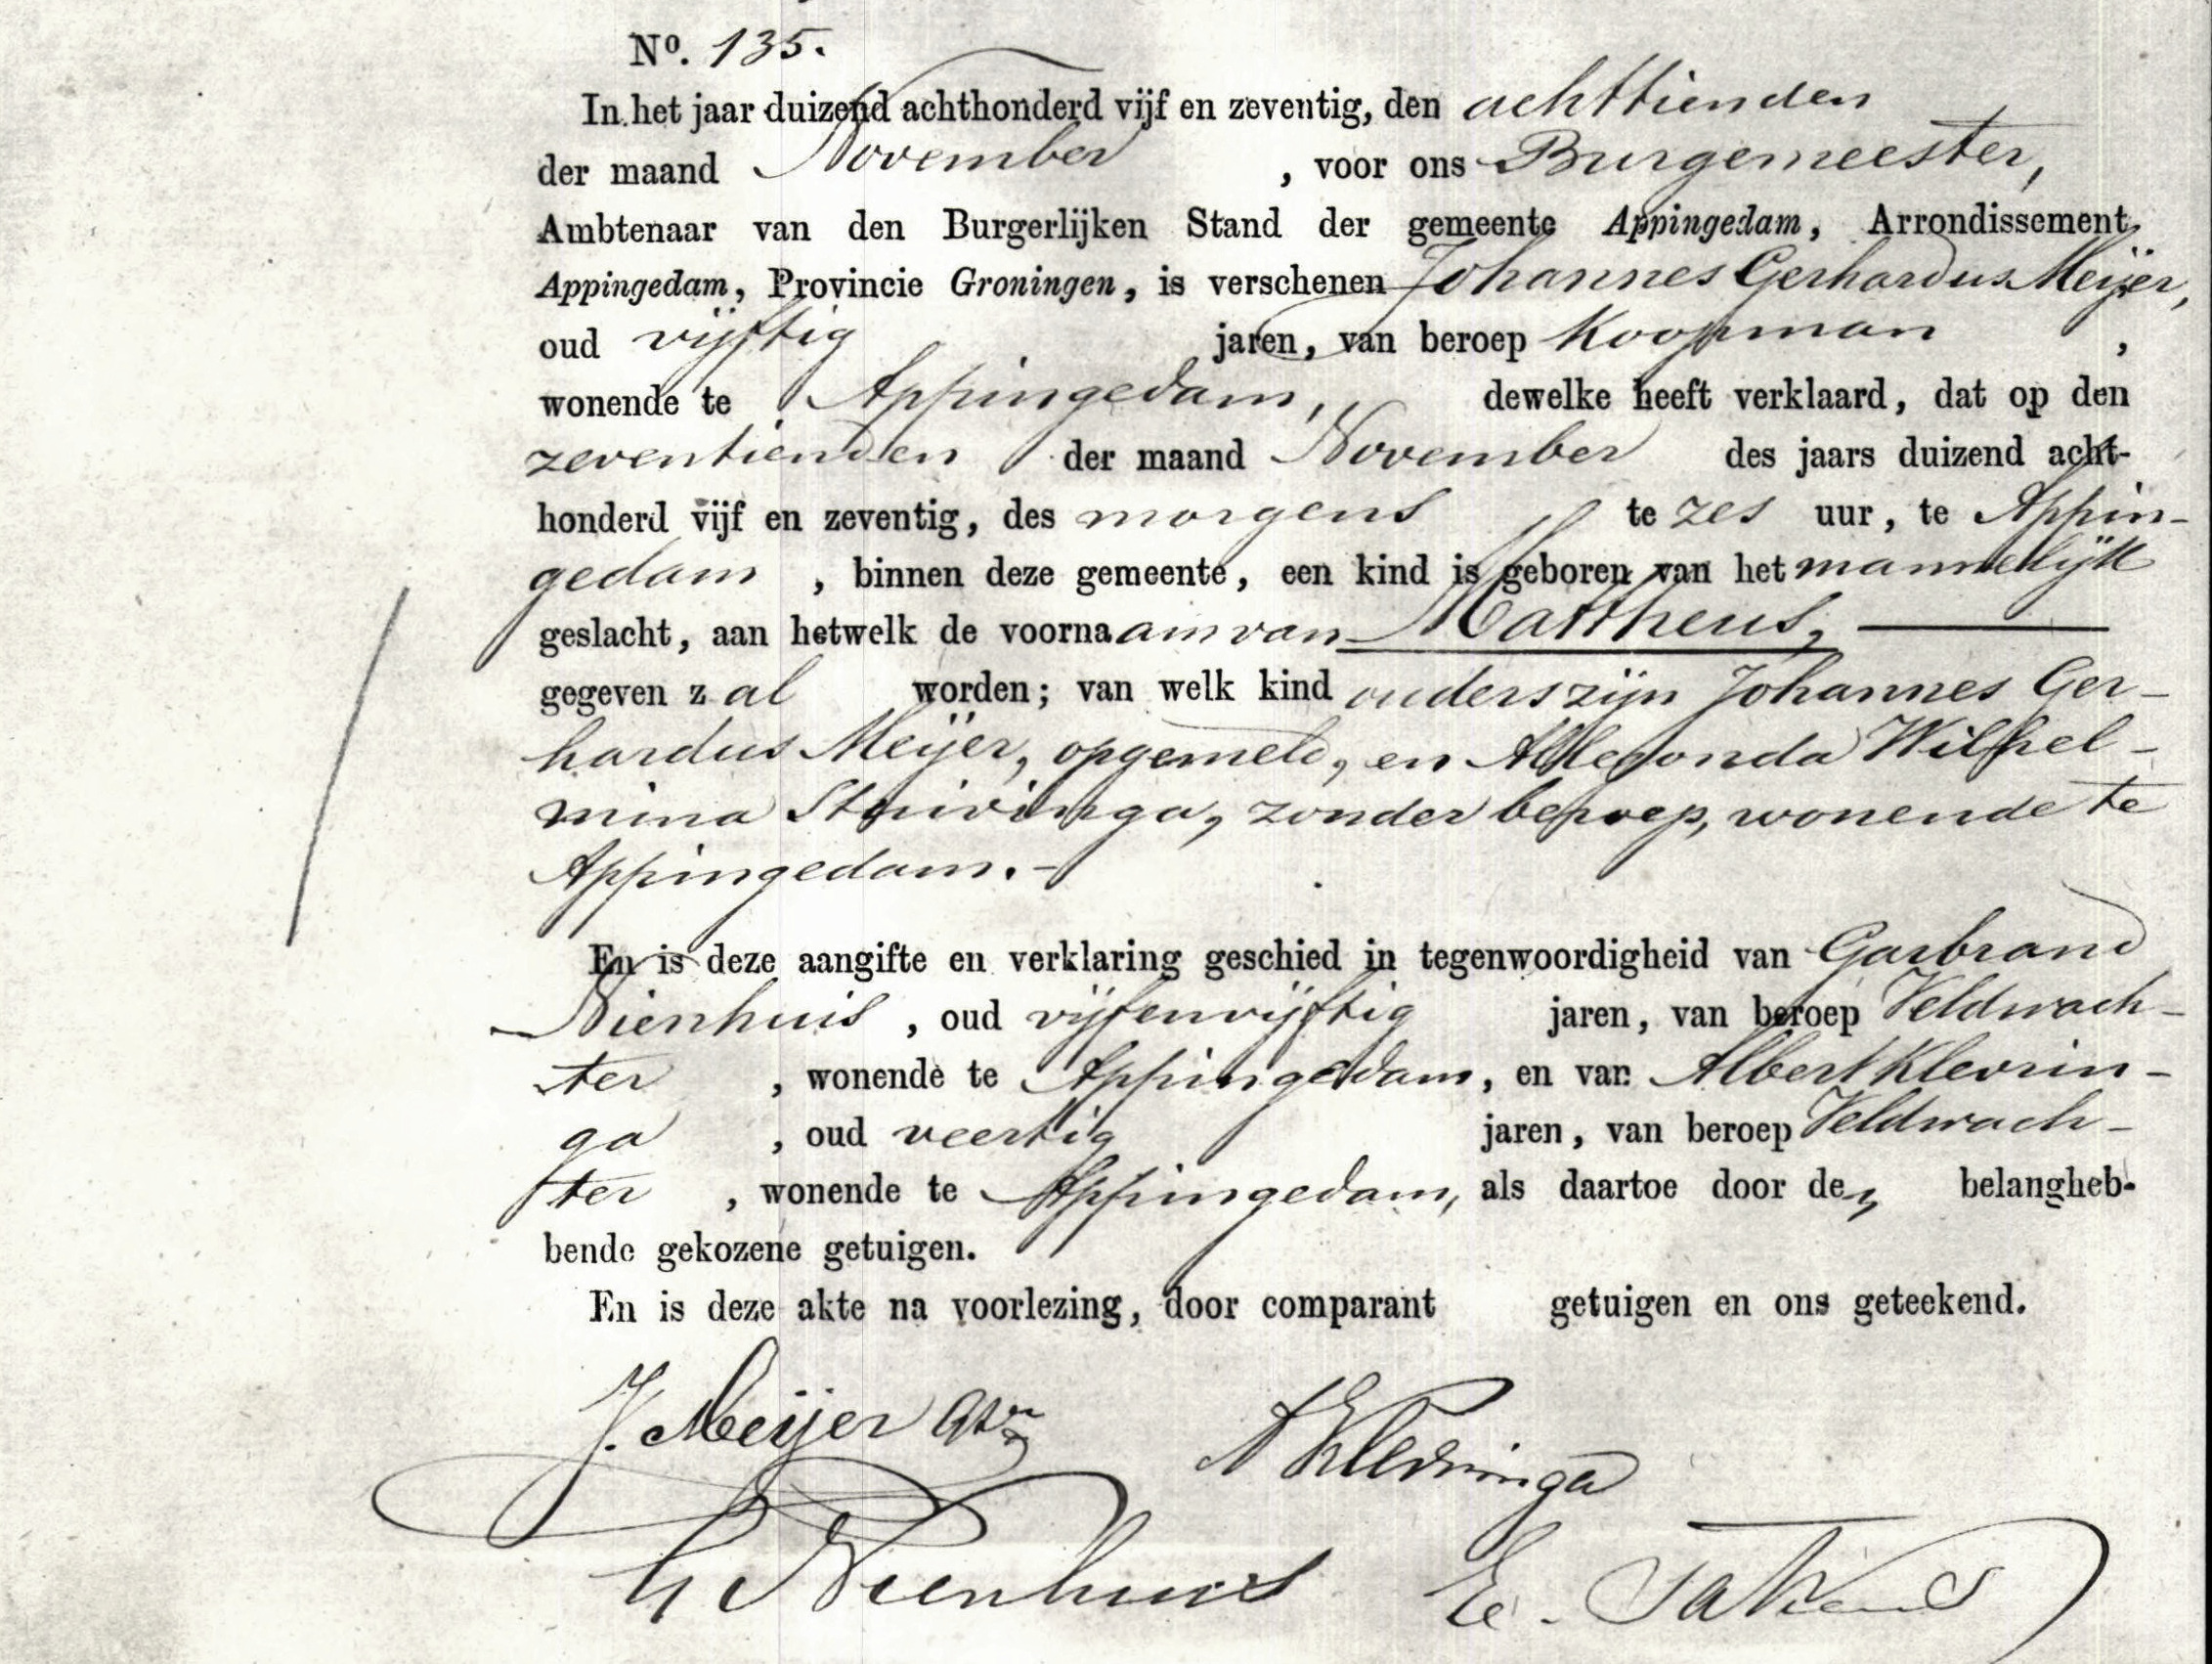 No. 135.
In het jaar duizend achthonderd vijf en zeventig, den achttienden
der maand November, voor ons Burgemeester,
Ambtenaar van den Burgerlijken Stand der gemeente Appingedam, Arrondissement
Appingedam, Provincie Groningen, is verschenen Johannes Gerhardus Meijer,
oud vijftig jaren, van beroep Koopman,
wonende te Appingedam, dewelke heeft verklaard, dat op den
zeventienden der maand November des jaars duizend acht-
honderd vijf en zeventig, des morgens te zes uur, te Appin-
gedam, binnen deze gemeente, een kind is geboren van het mannelijk
geslacht, aan hetwelk de voornaam van Mattheus,
gegeven zal worden; van welk kind ouders zijn Johannes Ger-
hardus Meijer, opgemeld, en Allegonda Wilhel-
mina Stuivinga, zonder beroep, wonende te
Appingedam.-
En is deze aangifte en verklaring geschied in tegenwoordigheid van Garbrand
Nienhuis, oud vijfenvijftig jaren, van beroep Veldwach-
ter, wonende te Appingedam, en van Albert Klevrin-
ga, oud veertig jaren, van beroep Veldwach-
ter, wonende te Appingedam, als daartoe door den belangheb-
bende gekozene getuigen.
En is deze akte na voorlezing, door comparant getuigen en ons geteekend.
J. Meijer
A Klevringa
G Nienhuis